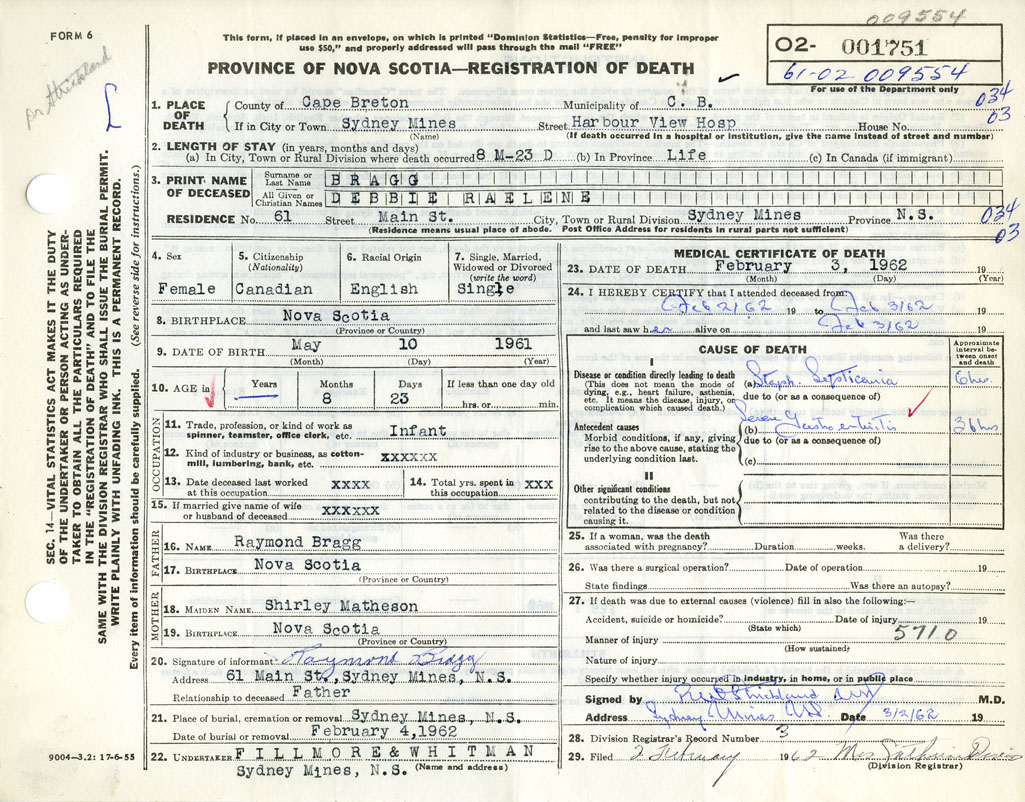 009554
FORM 6
This form, if placed in an envelope, on which is printed "Dominion Statistics—Free, penalty for improper
use $50," and properly addressed will pass through the mail "FREE"
02- 001751
61-02. 009554
For use of the Department only
Dr. Strickland
PROVINCE OF NOVA SCOTIA—REGISTRATION OF DEATH
034
03
1. PLACE OF DEATH
County of Cape Breton Municipality of C. B.
If in City or Town Sydney Mines Street Harbour View Hosp House No.
(Name) (If death occurred in a hospital or institution, give the name instead of street and number)
2. LENGTH OF STAY (in years, months and days)
(a) In City, Town or Rural Division where death occurred 8 M-23 D (b) In Province Life (c) In Canada (if immigrant)
3. PRINT NAME OF DECEASED
Surname or Last Name BRAGG
All Given or Christian Names DEBBIE RAELENE
RESIDENCE No. 61 Street Main St. City, Town or Rural Division Sydney Mines Province N.S.
(Residence means usual place of abode. Post Office Address for residents in rural parts not sufficient)
034
03
4. Sex
Female
5. Citizenship
(Nationality)
Canadian
6. Racial Origin
English
7. Single, Married,
Widowed or Divorced
(write the word)
Single
8. BIRTHPLACE Nova Scotia
(Province or Country)
9. DATE OF BIRTH May 10 1961
(Month) (Day) (Year)
10. AGE in
Years Months Days If less than one day old
8 23 hrs. or min.
OCCUPATION
11. Trade, profession, or kind of work as
spinner, teamster, office clerk, etc. Infant
12. Kind of industry or business, as cotton-
mill, lumbering, bank, etc. xxxxxx
13. Date deceased last worked
at this occupation xxxx
14. Total yrs. spent in
this occupation xxx
15. If married give name of wife
or husband of deceased xxxxxx
FATHER
16. NAME Raymond Bragg
17. BIRTHPLACE Nova Scotia
(Province or Country)
MOTHER
18. MAIDEN NAME Shirley Matheson
19. BIRTHPLACE Nova Scotia
(Province or Country)
20. Signature of informant Raymond Bragg
Address 61 Main St., Sydney Mines, N.S.
Relationship to deceased Father
21. Place of burial, cremation or removal Sydney Mines, N.S.
Date of burial or removal February 4, 1962
22. UNDERTAKER FILLMORE & WHITMAN
Sydney Mines, N.S. (Name and address)
MEDICAL CERTIFICATE OF DEATH
23. DATE OF DEATH February 3, 1962 19
(Month) (Day) (Year)
24. I HEREBY CERTIFY that I attended deceased from
Feb 2/62 19 to Feb 3/62 19
and last saw her alive on Feb 3/62 19
CAUSE OF DEATH
Approximate
interval be-
tween onset
and death
I
Disease or condition directly leading to death
(This does not mean the mode of
dying, e.g., heart failure, asthenia,
etc. It means the disease, injury, or
complication which caused death.)
(a) Staph. Septicemia 6 hrs.
due to (or as a consequence of)
Antecedent causes
Morbid conditions, if any, giving
rise to the above cause, stating the
underlying condition last.
(b) Severe Gastroenteritis 36 hrs
due to (or as a consequence of)
(c)
II
Other significant conditions
contributing to the death, but not
related to the disease or condition
causing it.
25. If a woman, was the death Was there
associated with pregnancy? Duration weeks. a delivery?
26. Was there a surgical operation? Date of operation 19
State findings Was there an autopsy?
27. If death was due to external causes (violence) fill in also the following:—
Accident, suicide or homicide? Date of injury 19
(State which)
5710
Manner of injury
(How sustained)
Nature of injury
Specify whether injury occurred in industry, in home, or in public place
Signed by Strickland M.D.
Address Sydney Mines NS. Date 3/2/62 19
28. Division Registrar's Record Number 3
29. Filed 2 February 1962 Mrs
(Division Registrar)
SEC. 14—VITAL STATISTICS ACT MAKES IT THE DUTY
OF THE UNDERTAKER OR PERSON ACTING AS UNDER-
TAKER TO OBTAIN ALL THE PARTICULARS REQUIRED
IN THE "REGISTRATION OF DEATH" AND TO FILE THE
SAME WITH THE DIVISION REGISTRAR WHO SHALL ISSUE THE BURIAL PERMIT.
WRITE PLAINLY WITH UNFADING INK. THIS IS A PERMANENT RECORD.
Every item of information should be carefully supplied. (See reverse side for instructions.)
9004—3.2: 17-6-55